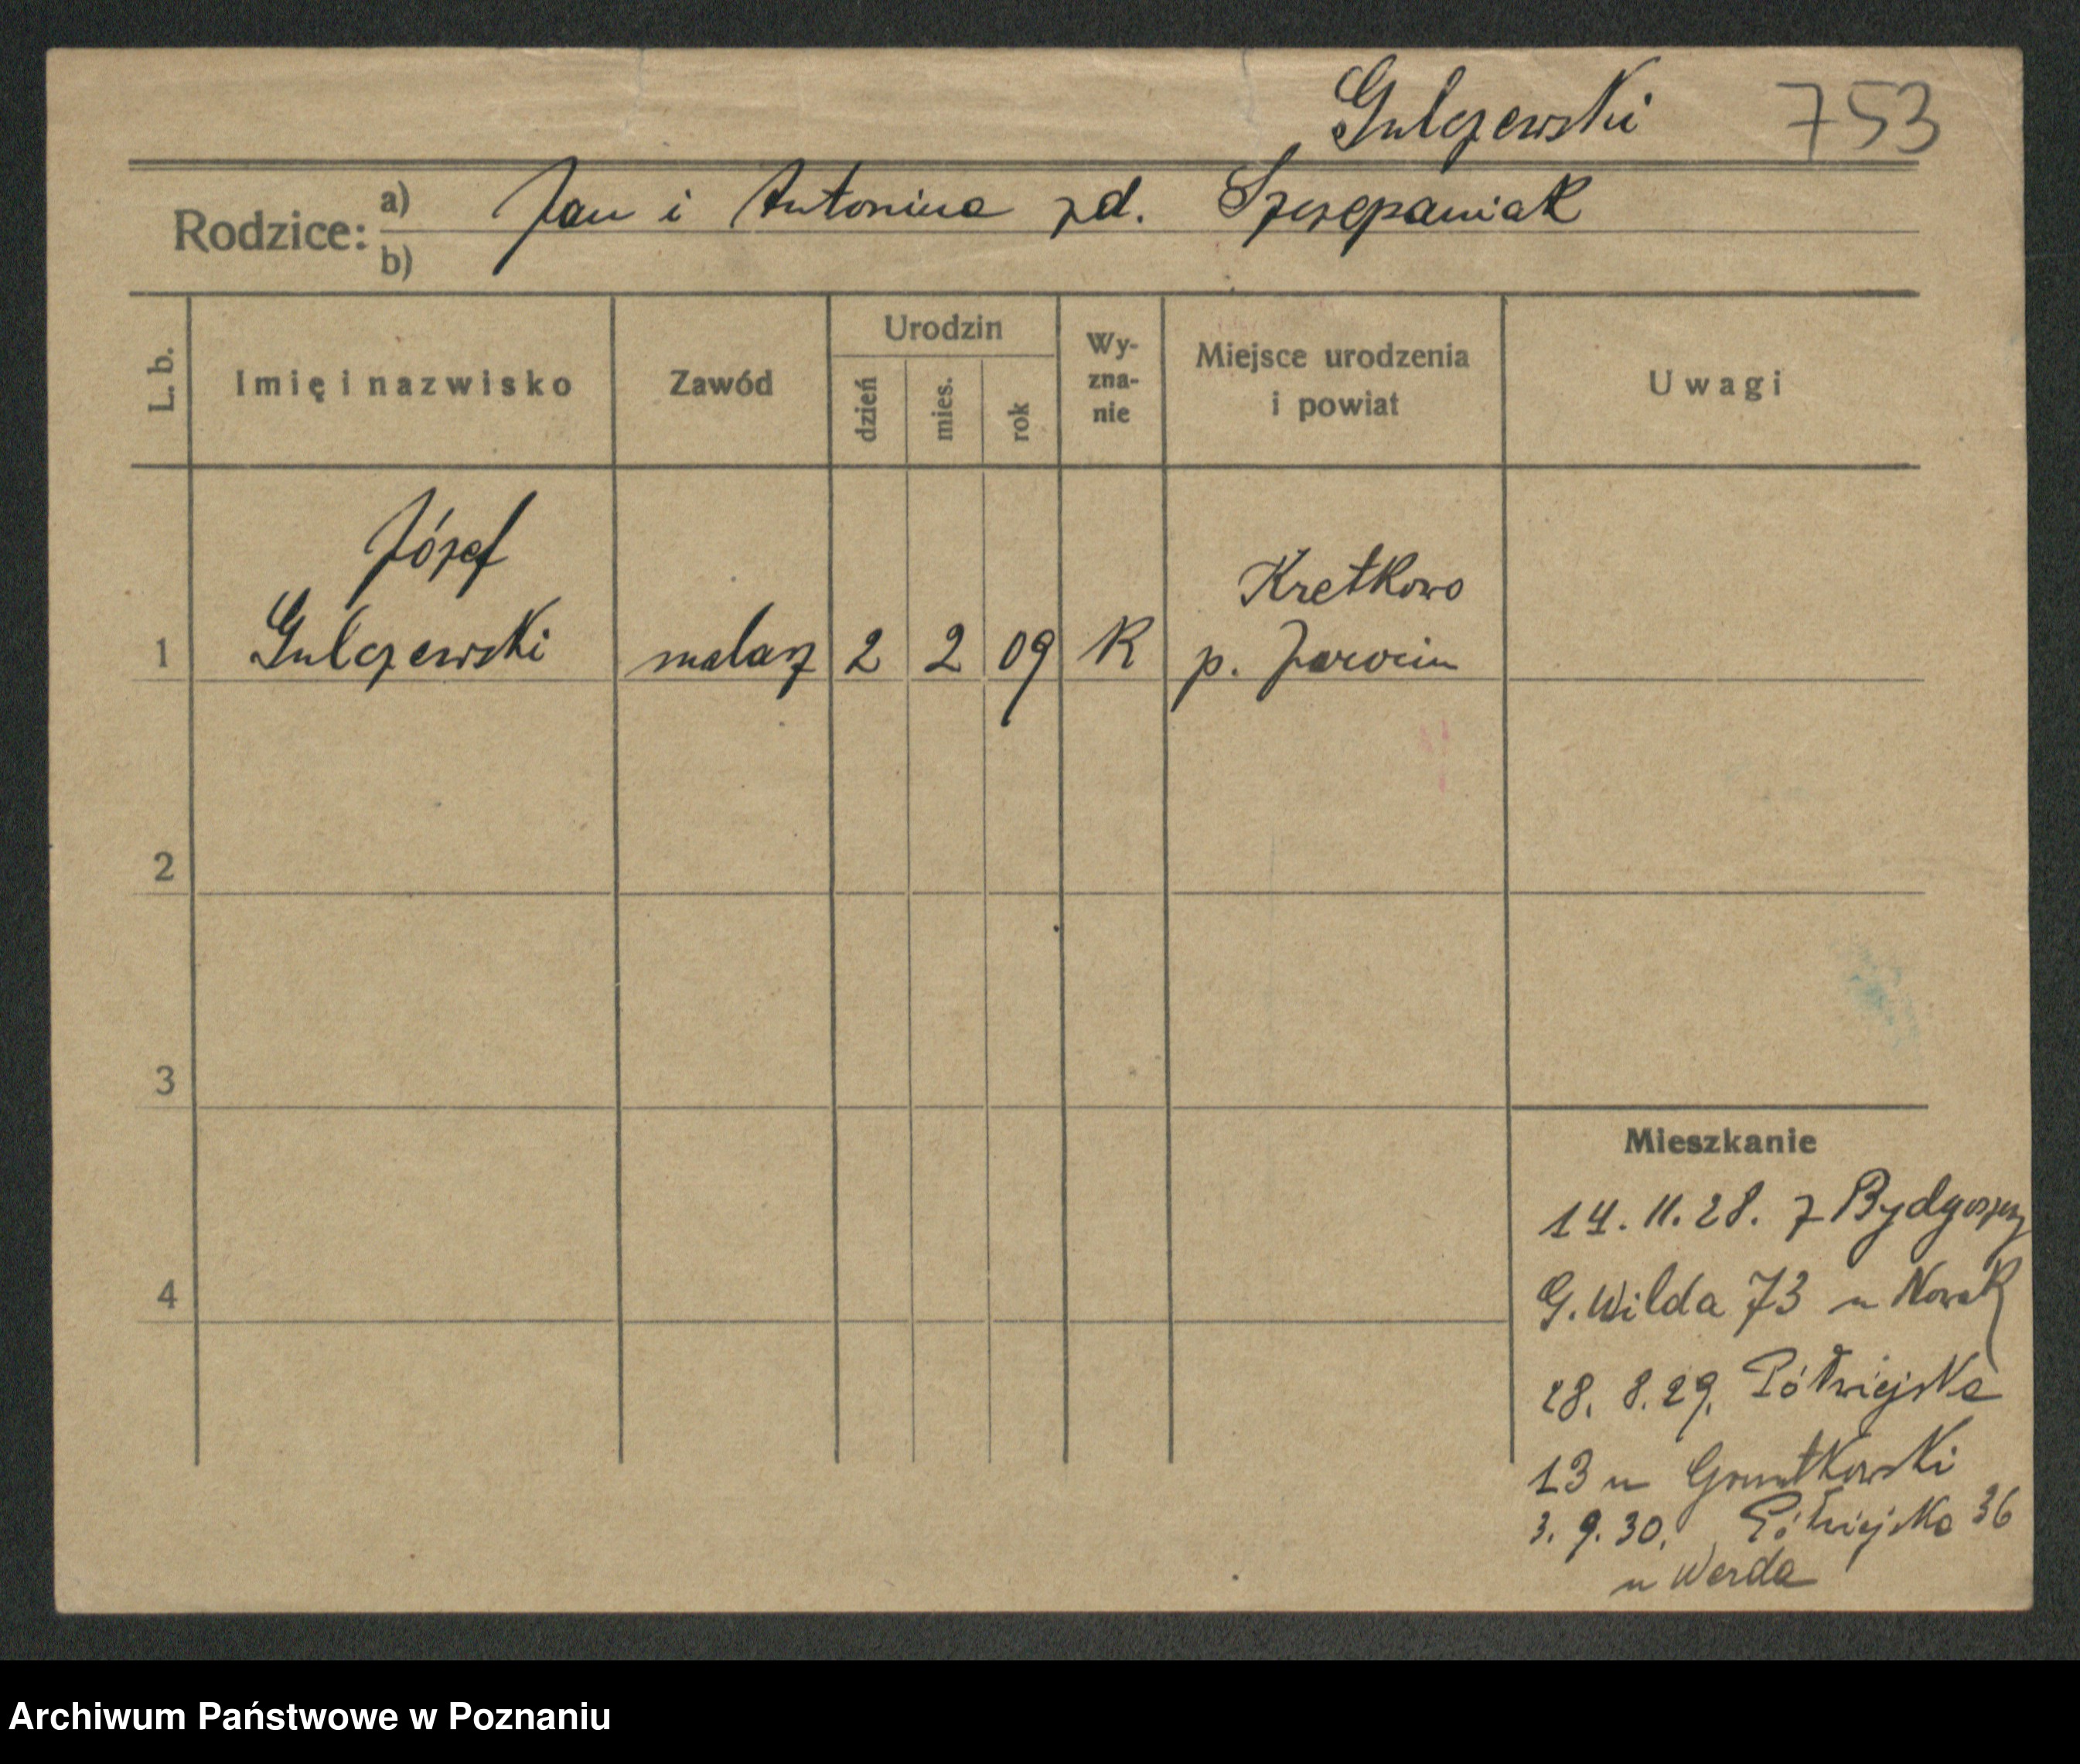 Gulczewski 753
Rodzice: a) Jan i Antonina zd. Szczepaniak
b)
L. b.
Imię i nazwisko
Zawód
Urodzin
dzień
mies.
rok
Wy-
zna-
nie
Miejsce urodzenia
i powiat
Uwagi
Józef
Gulczewski
Kretkowo
1 malarz 2 2 09 K p. Jarocin
2
3
4
Mieszkanie
14. 11. 28. z Bydgoszczy
G. Wilda 73 u Nowak
28. 8. 29. Półwiejska
13 u
3. 9. 30. Półwiejska 36
u Werda
Archiwum Państwowe w Poznaniu